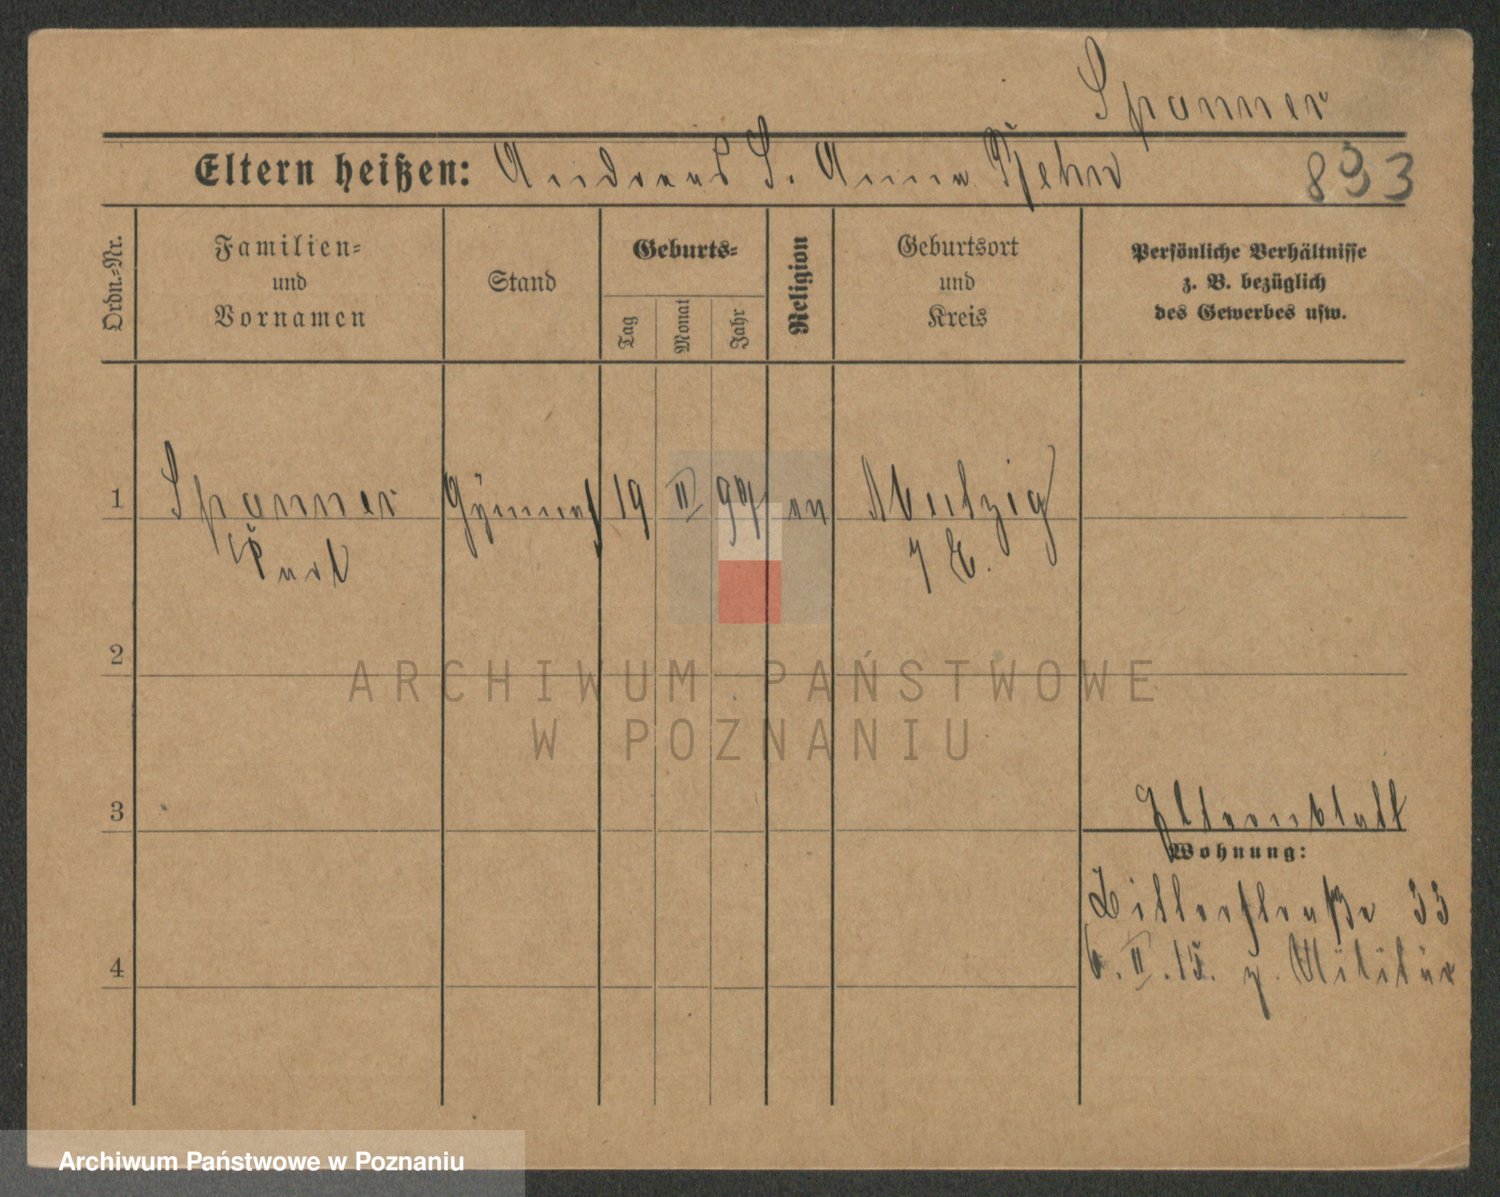 Spanner
Eltern heißen: Andreas S. Anna
833
Ordn.=Nr.
Familien=
und
Vornamen
Stand
Geburts=
Tag
Monat
Jahr
Religion
Geburtsort
und
Kreis
Persönliche Verhältnisse
z. B. bezüglich
des Gewerbes usw.
1 Spanner Gymnas 19 II 97 ev Mutzig
Curt
i E.
2
ARCHIWUM PAŃSTWOWE
W POZNANIU
3
Elternblatt
Wohnung:
Zillerstraße 33
4
6. II. 15. z. Militär
Archiwum Państwowe w Poznaniu